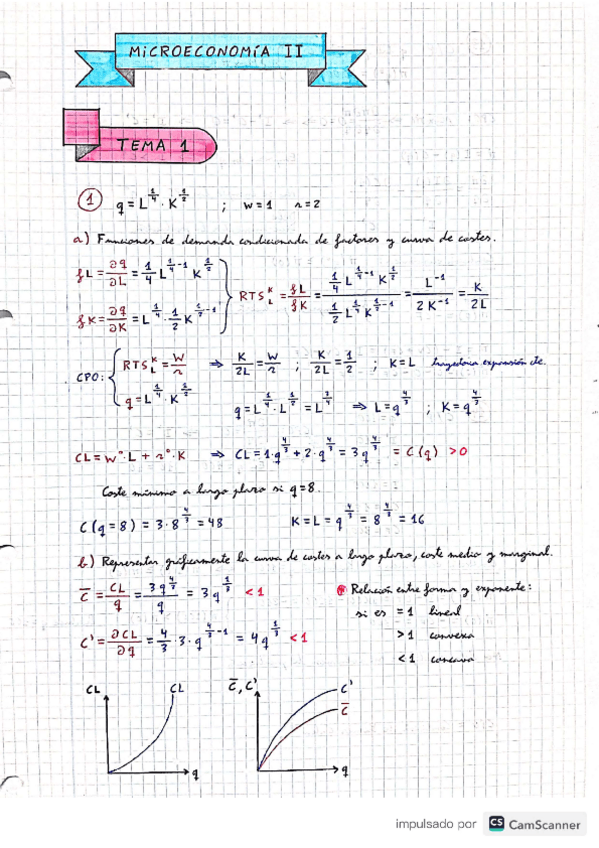 MICROECONOMÍA II
TEMA 1
① q = L^(1/4) · K^(1/2) ; w=1 r=2
a) Funciones de demanda condicionada de factores y curva de costes.
fL = ∂q/∂L = 1/4 L^(1/4-1) K^(1/2)
fK = ∂q/∂K = L^(1/4) · 1/2 K^(1/2-1)
RTS^K_L = fL/fK = (1/4 L^(1/4-1) K^(1/2))/(1/2 L^(1/4) K^(1/2-1)) = L^-1/(2K^-1) = K/2L
CPO: { RTS^K_L = w/r ⇒ K/2L = w/r ; K/2L = 1/2 ; K=L trayectoria expansión cte.
q = L^(1/4) · K^(1/2) q = L^(1/4) · L^(1/2) = L^(3/4) ⇒ L = q^(4/3) ; K = q^(4/3)
CL = w°·L + r°·K ⇒ CL = 1·q^(4/3) + 2·q^(4/3) = 3q^(4/3) = C(q) >0
Coste mínimo a largo plazo si q=8.
C(q=8) = 3·8^(4/3) = 48 K=L= q^(4/3) = 8^(4/3) = 16
b) Representar gráficamente la curva de costes a largo plazo, coste medio y marginal.
C̅ = CL/q = 3q^(4/3)/q = 3q^(1/3) <1
C' = ∂CL/∂q = 4/3 · 3·q^(4/3-1) = 4q^(1/3) <1
Relación entre forma y exponente:
si es =1 lineal
>1 convexa
<1 concava
CL CL q
C̅, C' C' C̅ q
impulsado por CS CamScanner